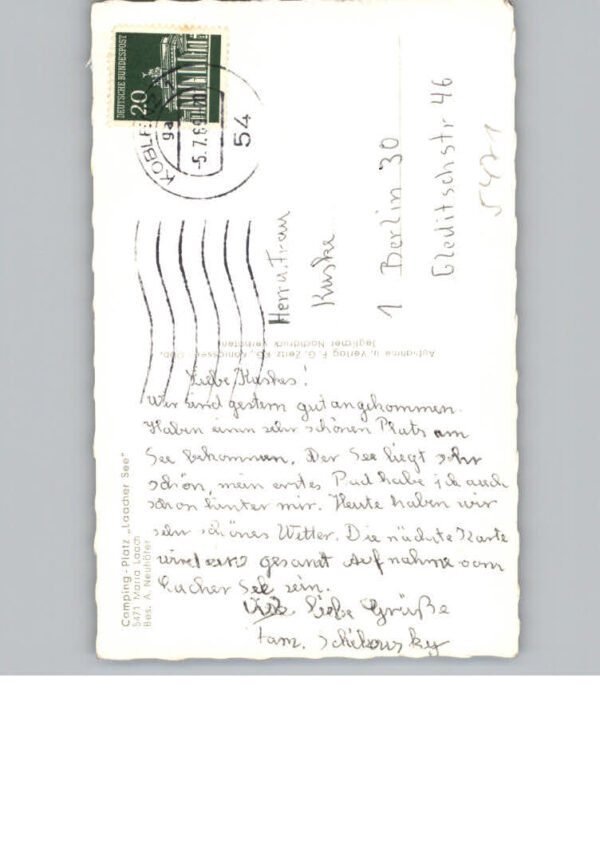 DEUTSCHE BUNDESPOST
20
54
-5.7.69
Herr u. Frau
Kuske
1 Berlin 30
Gleditschstr 46
5471
Aufnahme u. Verlag F. G. Zeitz KG., Königssee/Obb.
Jeglicher Nachdruck verboten
Camping-Platz „Laacher See"
5471 Maria Laach
Bes. A. Neuhöfer
Liebe Kuskes!
Wir sind gestern gut angekommen.
Haben einen sehr schönen Platz am
See bekommen. Der See liegt sehr
schön, mein erstes Bad habe ich auch
schon hinter mir. Heute haben wir
sehr schönes Wetter. Die nächste Karte
wird eine gesamt Aufnahme vom
Lacher See sein.
Viele liebe Grüße
Fam.